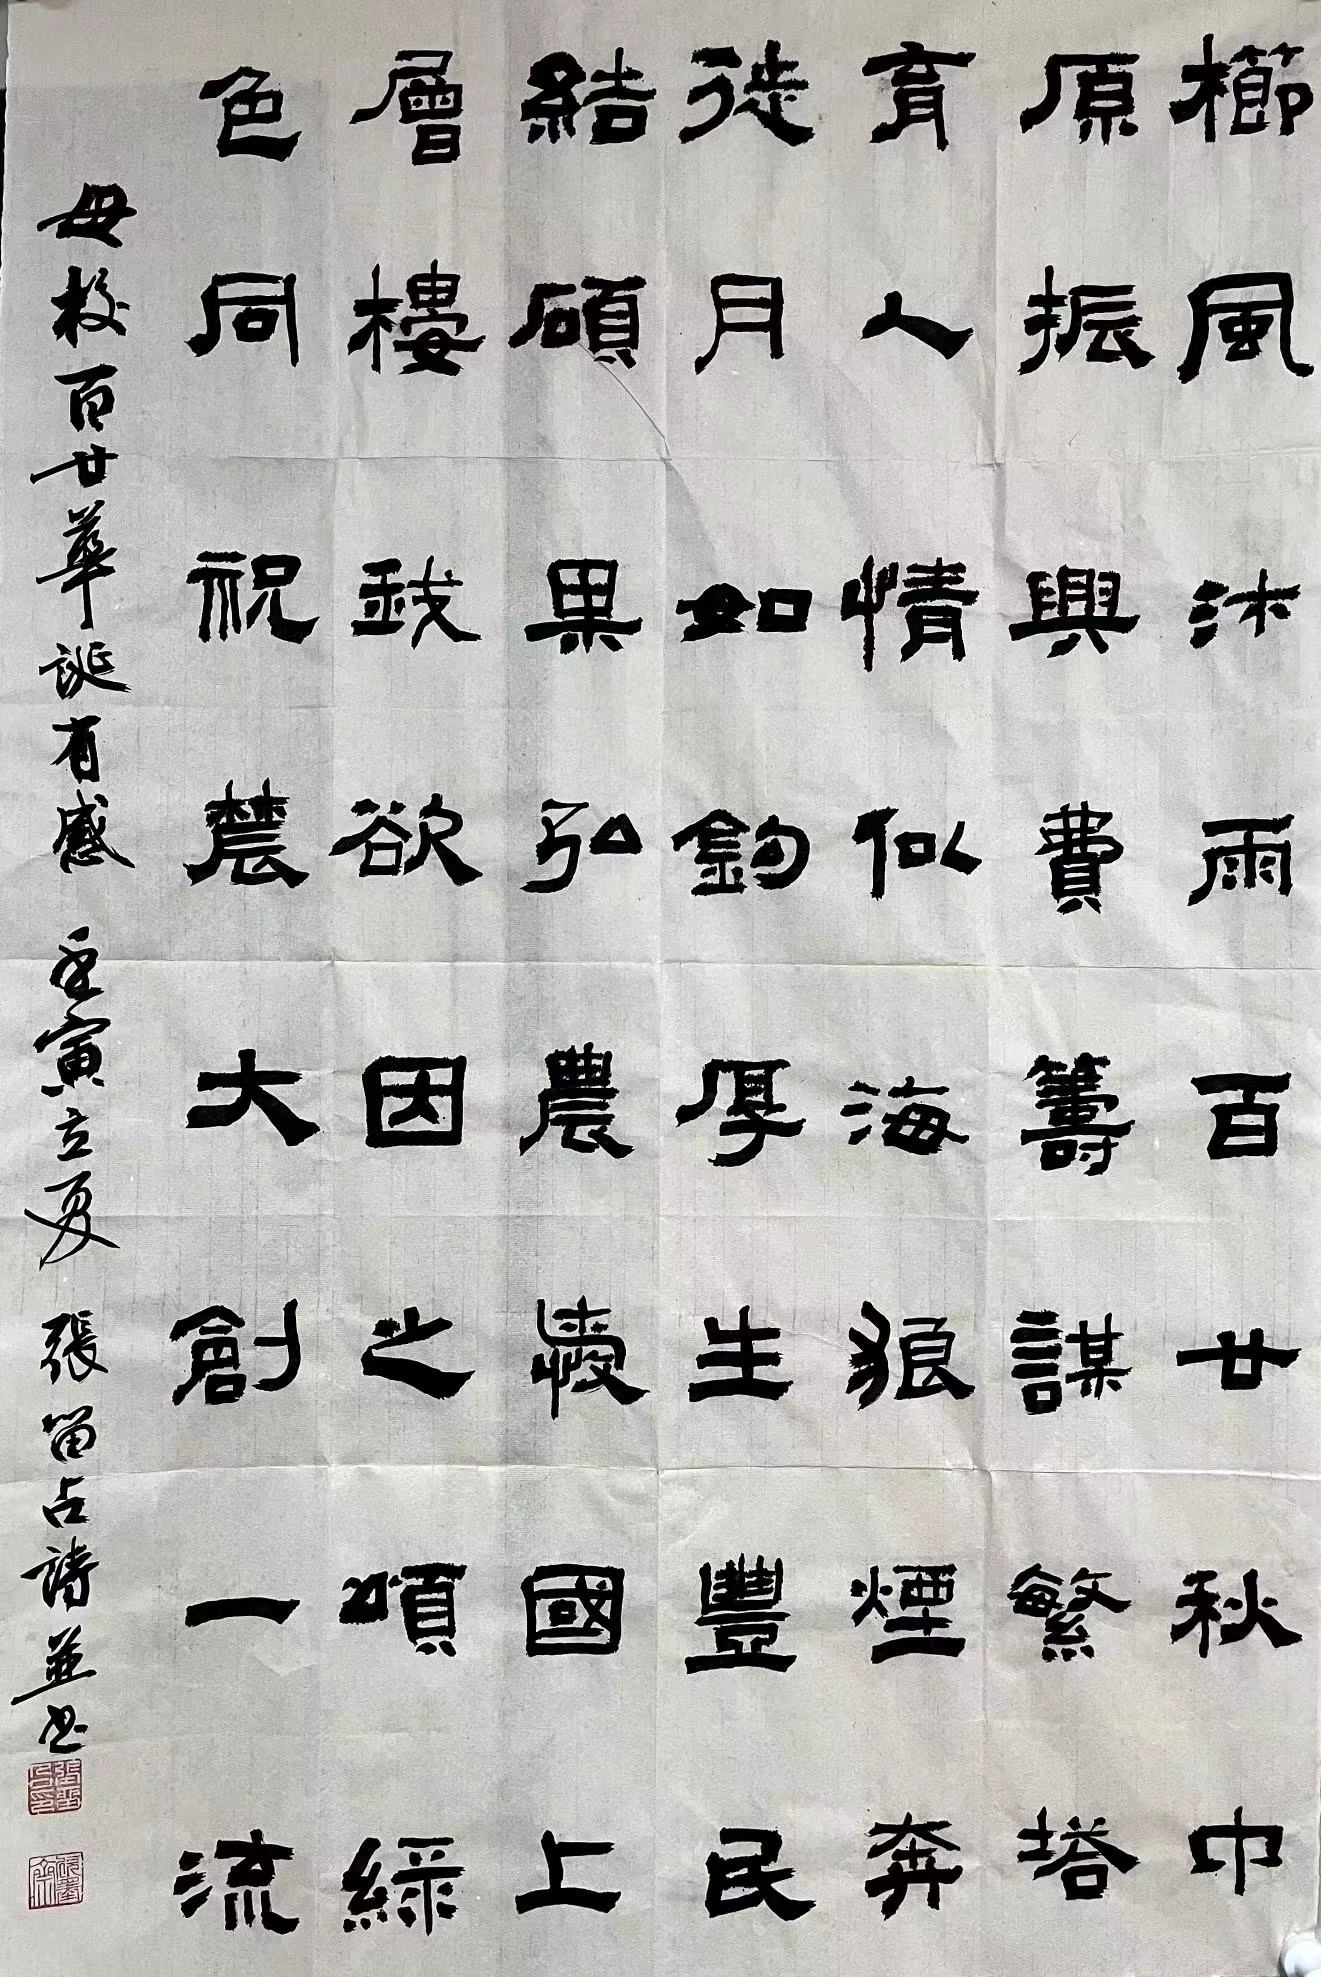 櫛風沐雨百廿秋中
原振興費籌謀繁塔
育人情似海狼煙奔
徙月如鈎厚生豐民
結碩果弘農懷國上
層樓我欲因之頌綠
色同祝農大創一流
母校百廿華誕有感 壬寅立夏 張留占詩並书